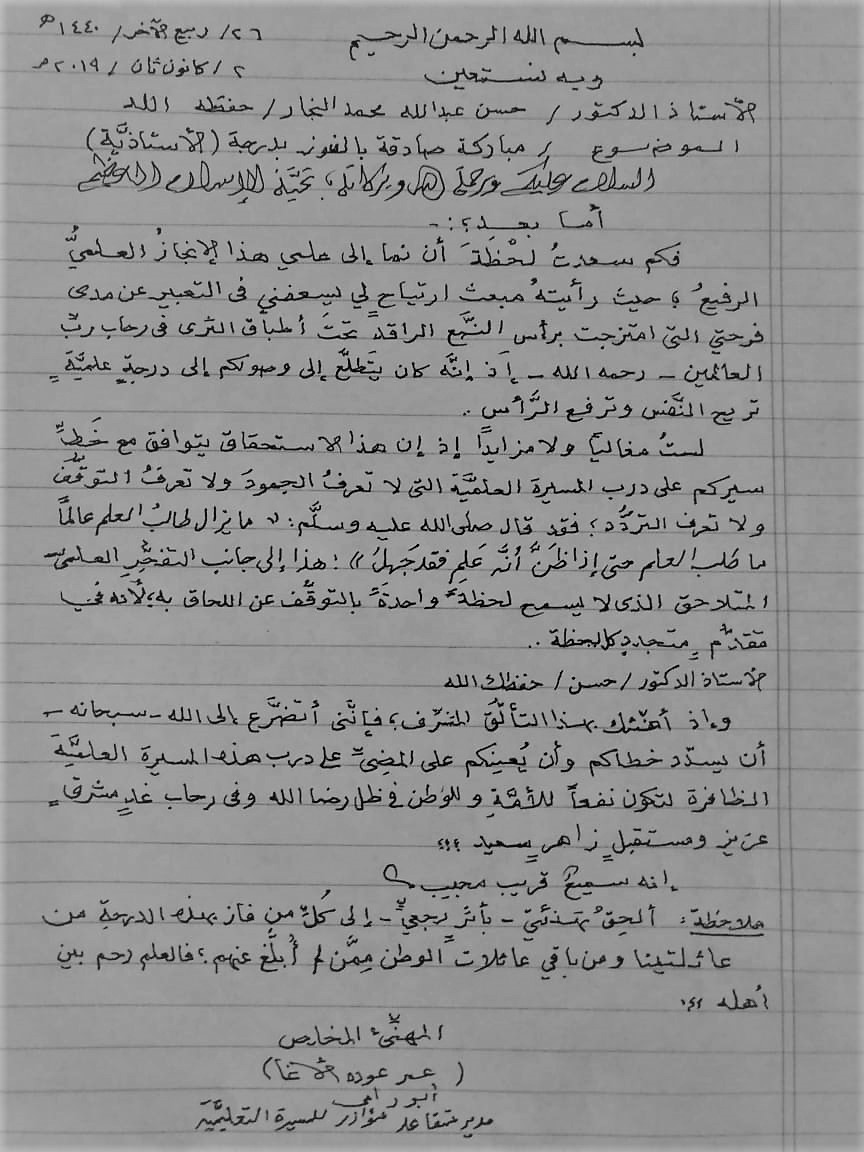 بسم الله الرحمن الرحيم
٢٦/ ربيع الآخر/ ١٤٤٠هـ
وبه نستعين
٢/ كانون ثان/ ٢٠١٩م
الأستاذ الدكتور/ حسن عبدالله محمد النجار/ حفظه الله
الموضوع / مباركة صادقة بالفوز بدرجة (الأستاذيَّة)
السلام عليكم ورحمة الله وبركاته، تحيَّة الإسلام العظيم
أما بعد؛:-
فكم سعدتُ لحْظَةَ أن نما إلى علمي هذا الإنجازُ العلميُّ
الرفيعُ؛ حيث رأيتهُ مبعث ارتياحٍ لي يسعفني في التعبير عن مدى
فرحتي التي امتزجت برأس النَّبع الراقد تحتَ أطباق الثرى في رحاب ربِّ
العالمين - رحمه الله - إذ إنَّه كان يتَطلَّع إلى وصولكم إلى درجةٍ علميَّةٍ
تريح النَّفس وترفع الرَّأس..
لستُ مغالياً ولا مزايداً إذ إن هذا الاستحقاق يتوافق مع خَطِّ
سيركم على درب المسيرة العلميَّة التي لا تعرفُ الجمودَ ولا تعرفُ التوقُّفَ
ولا تعرف التردُّد؛ فقد قال صلى الله عليه وسلَّم: " ما يزال طالبُ العلم عالماً
ما طلب العلم حتى إذا ظنَّ أنَّه عَلِم فقد جَهِلَ "؛ هذا إلى جانب التفجُّرِ العلميِّ
المتلاحق الذي لا يسمح لحظةً واحدةً بالتوقُّف عن اللحاق به؛ لأنه في
تقدُّمٍ متجددٍ كل لحظة..
الأستاذ الدكتور/ حسن/ حفظك الله
وإذ أهنّئك بهذا التألُّقِ المشرِّف؛ فإنَّني أتضرَّع إلى الله - سبحانه -
أن يسدّد خطاكم وأن يُعينكم على المضِيِّ على درب هذه المسيرة العلميَّةَ
الظافرة لتكون نفعاً للأمَّةِ وللوطن في ظل رضا الله وفي رحاب غدٍ مشرقٍ
عزيز ومستقبلٍ زاهرٍ سعيد ؛؛؛
إنه سميعٌ قريب مجيب
ملاحظة: ألحِقُ تهنئتي - بأثرٍ رجعيٍّ - إلى كُلِّ من فاز بهذه الدرجة من
عائلتينا ومن باقي عائلات الوطن مِمَّن لم أُبلَّغ عنهم؛ فالعلم رحم بين
أهله ؛؛
المهنِّئ المخلص
(عمر عوده الأغا)
أبو رامي
مدير متقاعد مؤازر للمسيرة التعليميَّة